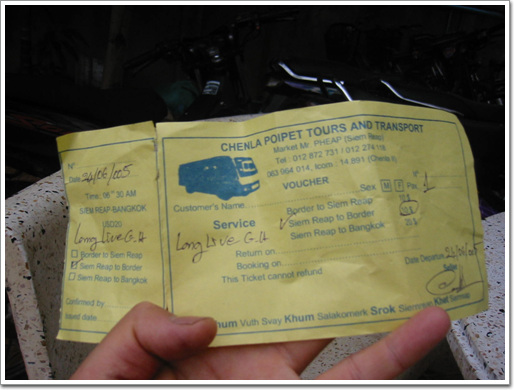 N°
Date 24/06/005
Time: 06 30 AM
SIEM REAP-BANGKOK
Long Live G.H
Border to Siem Reap
Siem Reap to Border
Siem Reap to Bangkok
Confirmed by
Issued date
CHENLA POIPET TOURS AND TRANSPORT
Market Mr. PHEAP (Siem Reap)
Tel : 012 872 731 / 012 274
003 964 014, Icom : 14.991 (Chenla
VOUCHER
Customer's Name
Sex M F Pax 1
Service
Border to Siem Reap 10 $
Long Live G.H Siem Reap to Border 10 $
Siem Reap to Bangkok
Return on
Booking on
Date Departure 24/06/005
This Ticket cannot refund
Seller
Vuth Svay Khum Salakomerk Srok Siemreap Khet Siemreap